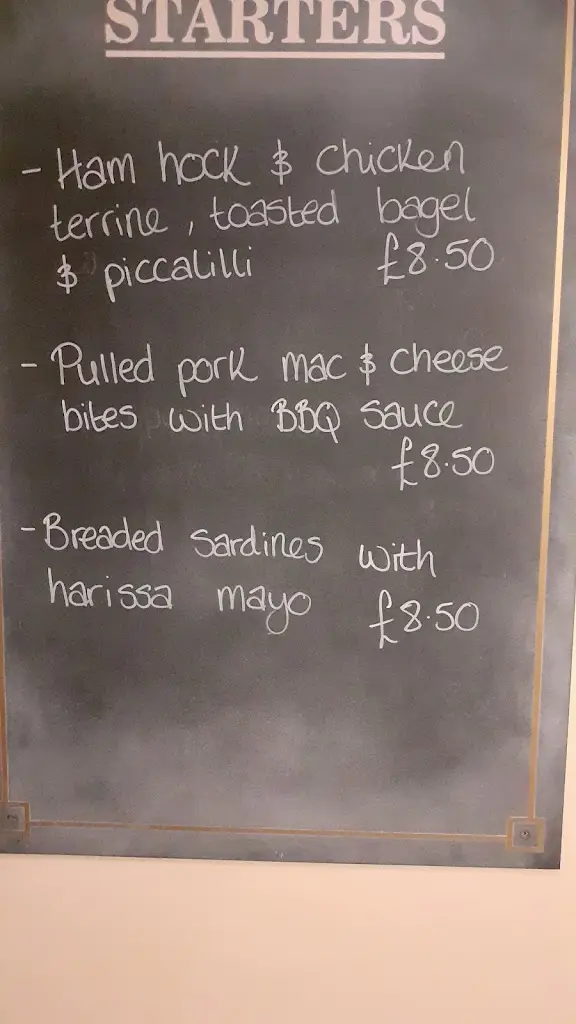 STARTERS
- Ham hock & chicken
terrine, toasted bagel
& piccalilli £8.50
- Pulled pork mac & cheese
bites with BBQ sauce
£8.50
- Breaded sardines with
harissa mayo £8.50